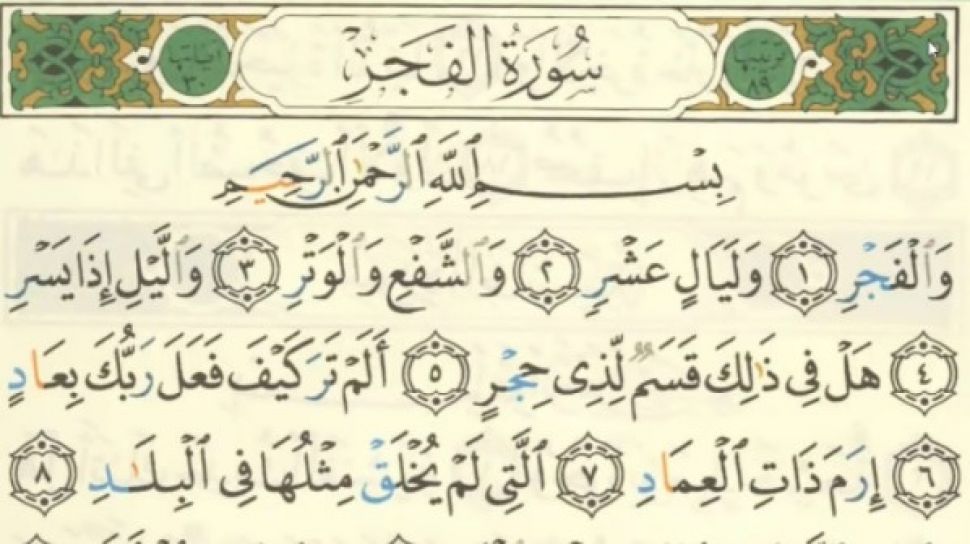 ترتيبها ٨٩
سُورَةُ الفَجْرِ
آياتها ٣٠
بِسْمِ ٱللَّهِ ٱلرَّحْمَٰنِ ٱلرَّحِيمِ
وَٱلْفَجْرِ ١ وَلَيَالٍ عَشْرٍ ٢ وَٱلشَّفْعِ وَٱلْوَتْرِ ٣ وَٱلَّيْلِ إِذَا يَسْرِ
٤ هَلْ فِى ذَٰلِكَ قَسَمٌ لِّذِى حِجْرٍ ٥ أَلَمْ تَرَ كَيْفَ فَعَلَ رَبُّكَ بِعَادٍ
٦ إِرَمَ ذَاتِ ٱلْعِمَادِ ٧ ٱلَّتِى لَمْ يُخْلَقْ مِثْلُهَا فِى ٱلْبِلَٰدِ ٨